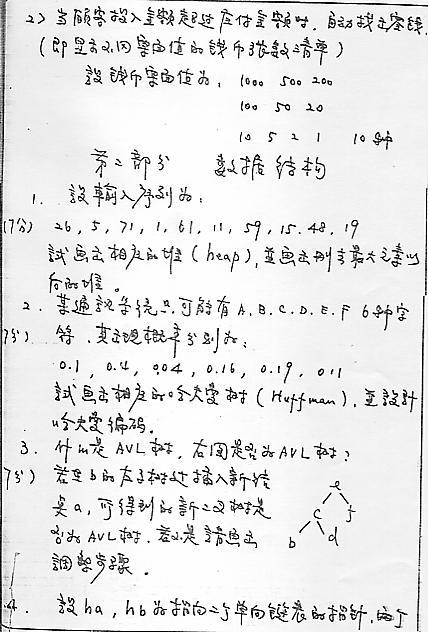 2) 当顧客投入金額超过应付金額时，自动找出零钱.
(即显示不同票面值的钱币张数清单)
設钱币票面值为: 1000 500 200
100 50 20
10 5 2 1 10种
第二部分 数据结构
1. 設輸入序列为:
(7分) 26, 5, 71, 1, 61, 11, 59, 15. 48, 19
試画出相应的堆 (heap), 並画出刪去最大元素以
后的堆。
2. 某通訊系统只可能有 A. B. C. D. E. F 6种字
7分) 符. 其出現概率分别为:
0.1, 0.4, 0.04, 0.16, 0.19, 0.11
試画出相应的哈夫曼树 (Huffman), 並設計
哈夫曼编码.
3. 什么是 AVL 树, 右图是否为 AVL 树?
7分) 若在 b 的左子树处插入新结
点 a, 可得到的新二叉树是
否为 AVL 树. 若不是請画出
調整步驟.
e
c f
b d
4. 設 ha, hb 为指向二个单向链表的指針, 两个